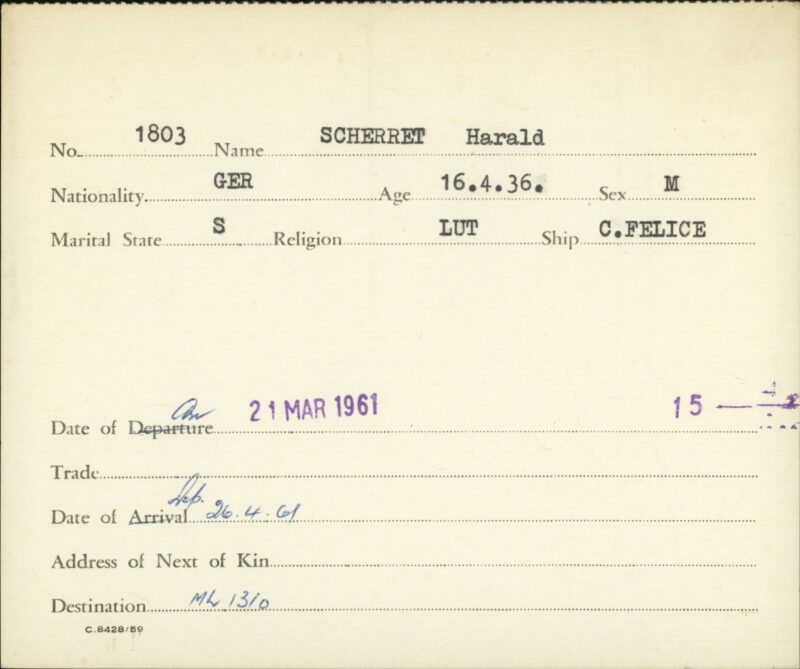 No. 1803 Name SCHERRET Harald
Nationality. GER Age 16.4.36. Sex M
Marital State S Religion LUT Ship C.FELICE
Arr
Date of Departure 21 MAR 1961 15
Trade
Dep.
Date of Arrival 26.4.61
Address of Next of Kin
Destination ML 1310
C.8428/59